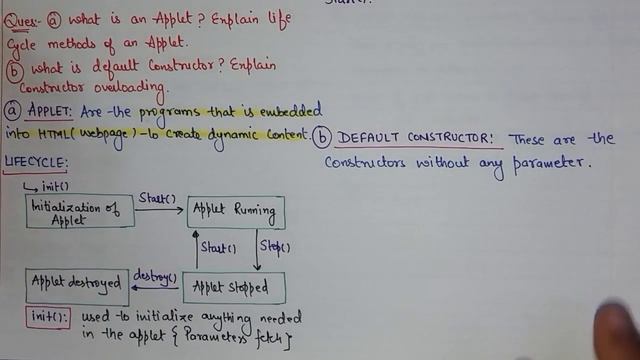 Ques:- (a) what is an Applet? Explain life
Cycle methods of an Applet.
(b) what is default Constructor? Explain
Constructor overloading.
(a) APPLET: Are the programs that is embedded
into HTML (webpage) to create dynamic content.
LIFECYCLE:
init()
Initialization of
Applet
Start()
Applet Running
Start()
Stop()
Applet destroyed
destroy()
Applet Stopped
init(): used to initialize anything needed
in the applet { Parameters fetch }
(b) DEFAULT CONSTRUCTOR: These are the
Constructors without any parameter.